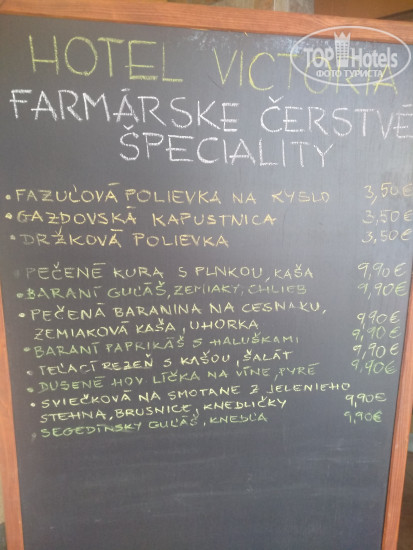 HOTEL VICTORIA
TOP Hotels
ФОТО ТУРИСТА
FARMÁRSKE ČERSTVÉ
ŠPECIALITY
• FAZUĽOVÁ POLIEVKA NA KYSLO 3,50€
• GAZDOVSKÁ KAPUSTNICA 3,50€
• DRŽKOVÁ POLIEVKA 3,50€
• PEČENÉ KURA S PLNKOU, KAŠA 9,90€
• BARANÍ GUĽÁŠ, ZEMIAKY, CHLIEB 9,90€
• PEČENÁ BARANINA NA CESNAKU, 9,90€
ZEMIAKOVÁ KAŠA, UHORKA
• BARANÍ PAPRIKÁŠ S HALUŠKAMI 9,90€
• TEĽACÍ REZEŇ S KAŠOU, ŠALÁT 9,90€
• DUSENÉ HOV. LÍČKA NA VÍNE, PYRÉ 9,90€
• SVIEČKOVÁ NA SMOTANE Z JELENIEHO
STEHNA, BRUSNICE, KNEDLIČKY 9,90€
• SEGEDÍNSKY GUĽÁŠ, KNEDĽA 9,90€